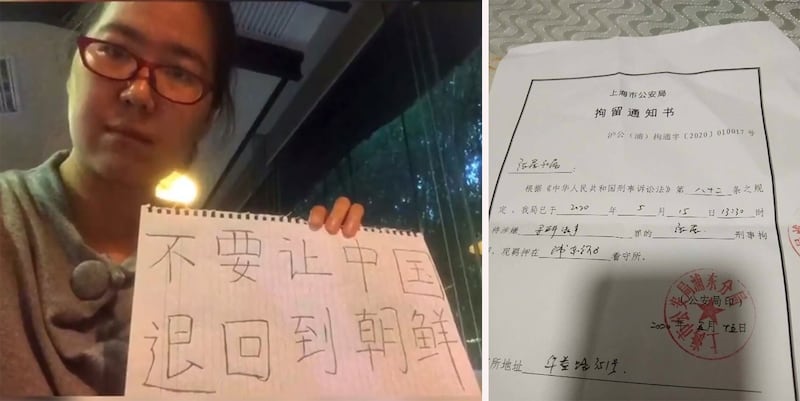 不要让中国
退回到朝鲜
上海市公安局
拘留通知书
沪公（浦）拘通字〔2020〕010017号
根据《中华人民共和国刑事诉讼法》第 八十二 条之规
定，我局已于 2020 年 5 月 15 日 13:30 时
将涉嫌 寻衅滋事 罪的 刑事拘
，现羁押在 看守所。
公安局印
2020 年 五 月 十五 日
所地址